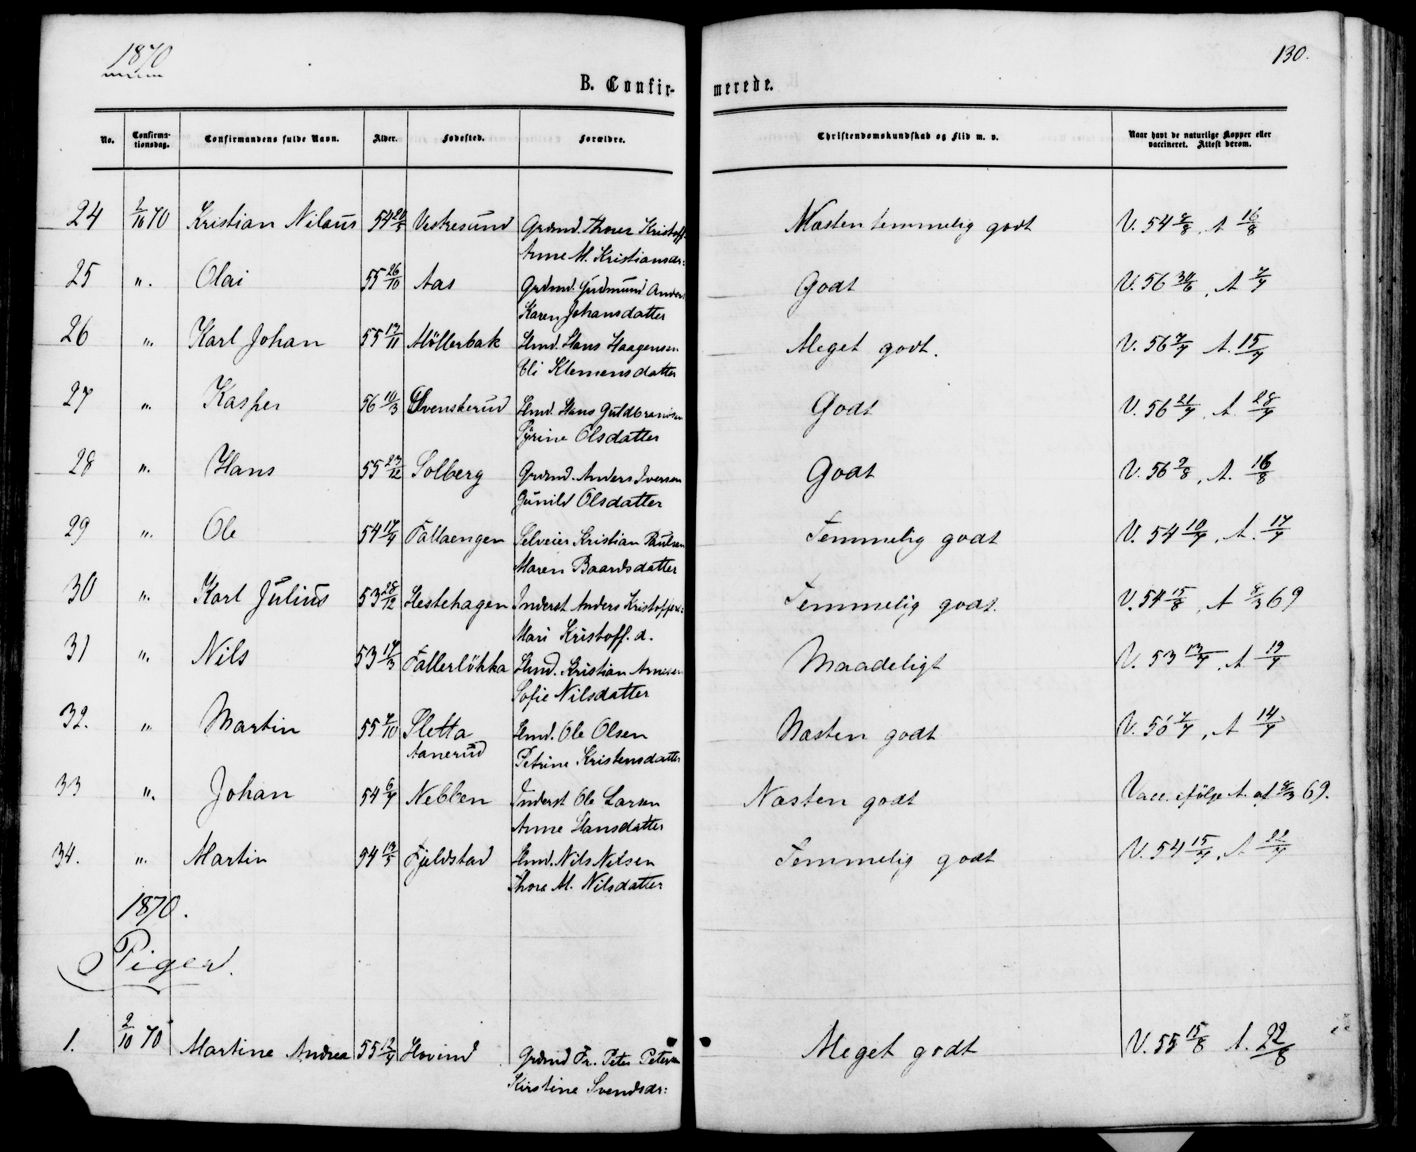 1870
130.
B. Confirmerede.
No. Confirmationsdag. Confirmandens fulde Navn. Alder. Fødested. Forældre. Christendomskundskab og Flid m. v. Naar havt de naturlige Kopper eller vaccineret. Attest derom.
24 2/10 70 Kristian Nilaus 54 20/5 Vestresund Grdmd. Thorer Kristoff. Næsten temmelig godt V. 54 8/8 A 16/8
Anne M. Kristiansdr:
25 „ Olai 55 26/10 Aas Grdmd. Gudmund Anders Godt V. 56 30/6, A 7/7
Karen Johansdatter
26 „ Karl Johan 55 17/11 Möllerbak Hmd. Hans Haagensen Meget godt. V. 56 7/7 A. 15/7
Eli Klemensdatter
27 „ Kasper 56 10/3 Svenskerud Hmd. Hans Guldbransen Godt V. 56 21/7, A. 28/7
Pyrine Olsdatter
28 „ Hans 55 27/12 Solberg Grdmd. Anders Iversen Godt V. 56 9/8, A. 16/8
Gunild Olsdatter
29 „ Ole 54 17/4 Fallaengen Selveier Kristian Paulsen Temmelig godt V. 54 10/7, A. 17/7
Maren Baardsdatter
30 „ Karl Julius 53 28/12 Hestehagen Inderst Anders Kristoffers: Temmelig godt. V. 54 15/8, A 4/3 69
Mari Kristoff. d.
31 „ Nils 53 17/3 Fallerlökka Hmd. Kristian Arnesen Maadeligt V. 53 12/7, A 19/7
Sofie Nilsdatter
32. „ Martin 55 7/10 Sletta Hmd. Ole Olsen Næsten godt V. 56 7/7, A 14/7
Aanerud Petrine Kristensdatter
33 „ Johan 54 6/7 Nebben Inderst Ole Larsen Næsten godt Vacc. ifölge A. af 4/3 69.
Anne Hansdatter
34. „ Martin 54 12/5 Fjeldstad Hmd. Nils Nilsen Temmelig godt V. 54 15/7, A 22/7
Thora M. Nilsdatter
1870.
Piger.
1. 2/10 70 Martine Andrea 55 12/4 Hovind Grdmd Fr. Peter Petersen Meget godt V. 55 15/8 A. 22/8
Kirstine Svendsdr: